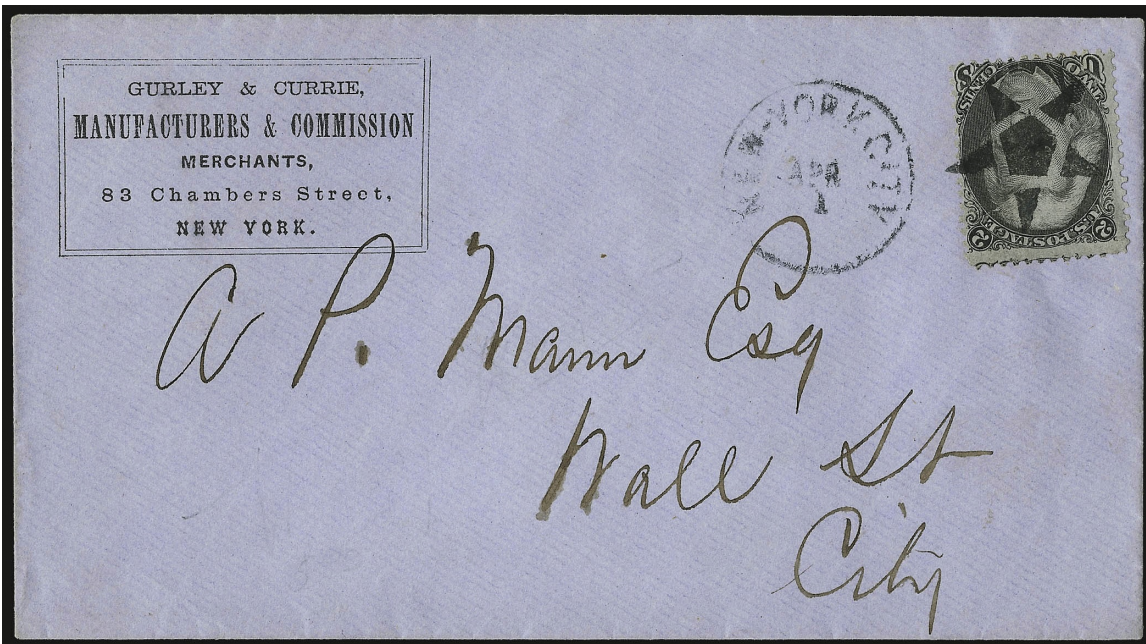 GURLEY & CURRIE,
MANUFACTURERS & COMMISSION
MERCHANTS,
83 Chambers Street,
NEW YORK.
NEW-YORK.CITY
APR
1
U.S. POSTAGE
TWO CENTS
2 2
A P. Mann Esq
Wall St
City